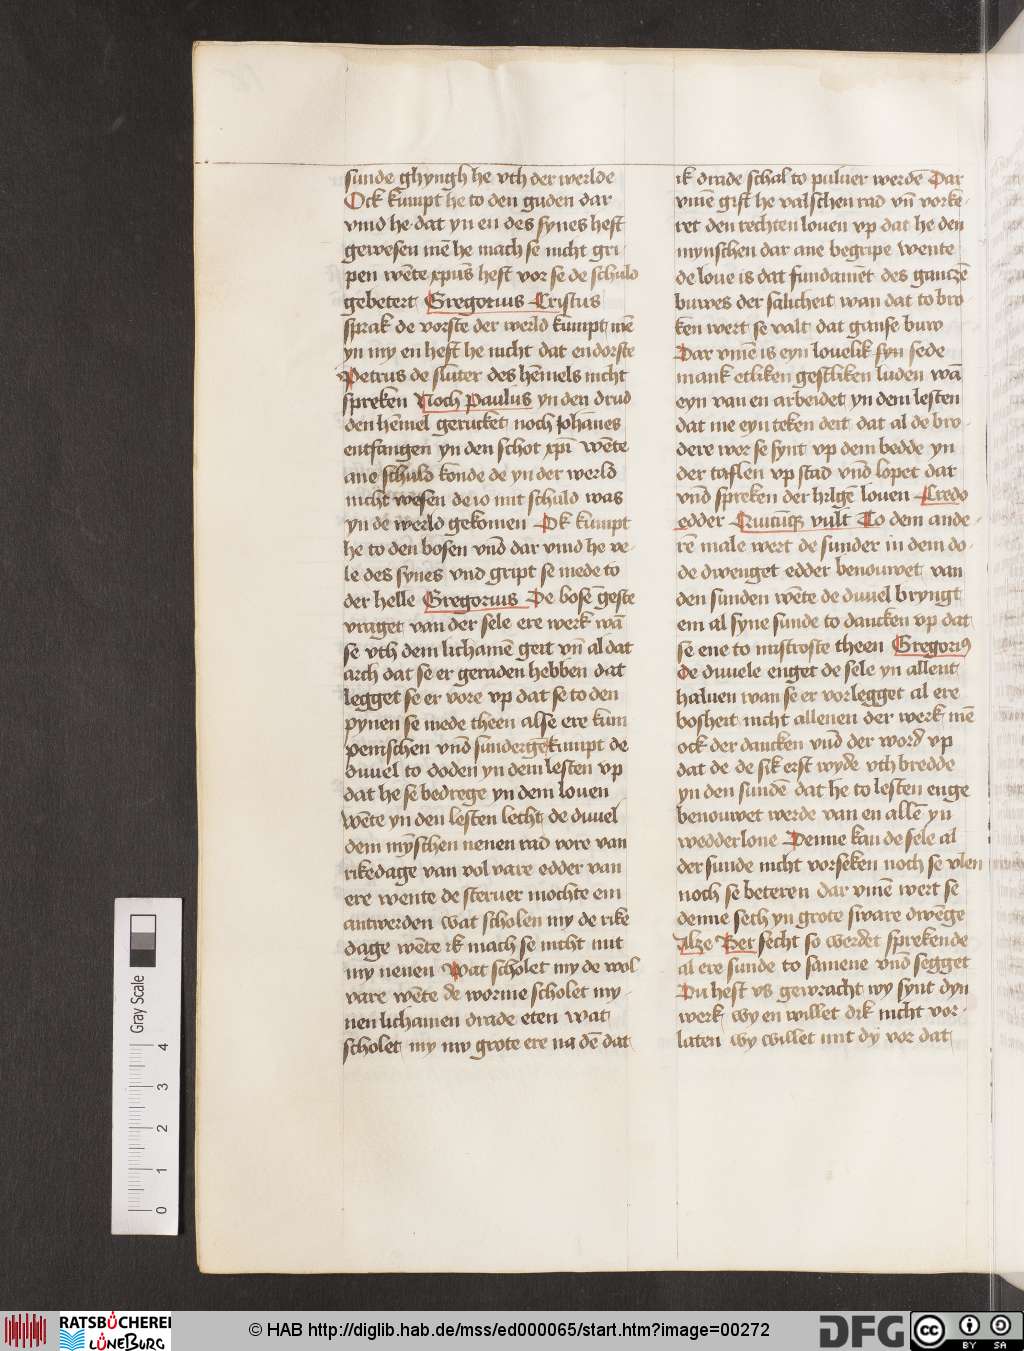 sunde ghyngh he vth der werlde
Ock kūmpt he to den guden dar
vind he dat yn en des synes heft
gewesen mē he mach se nicht gri
pen wēte xpūs heft vor se de schuld
gebetert Gregorius Cristus
sprak de vorste der werld kūmpt mē
yn my en heft he nicht dat en dorste
Petrus de sluter des hēmels nicht
spreken Noch Paulus yn den drud
den hēmel gerucket noch Johānes
entfangen yn den schot xpi wēte
ane schuld konde de yn der werld
nicht wesen de io mit schuld was
yn de werld gekomen Ok kūmpt
he to den bosen vnd dar vind he ve
le des synes vnd gript se mede to
der helle Gregorius De bose geste
vraget van der sele ere werk wā
se vth dem lichamē geit vn̄ al dat
arch dat se er geraden hebben dat
legget se er vore vp dat se to den
pynen se mede theen alse ere kum
penischen vnd sundergē kumpt de
duuel to doden yn dem lesten vp
dat he se bedrege yn dem louen
wēte yn den lesten lecht de duuel
dem mȳschen nenen rad vore van
rikedage van volvare edder van
ere wente de steruer mochte em
antwerden wat scholen my de rike
dage wēte ik mach se nicht mit
my nenen Wat scholet my de wol
vare wēte de worme scholet my
nen lichamen drade eten wat
scholet my nw grote ere na dē dat
ik drade schal to puluer werdē Dar
vmē gift he valschen rad vn̄ vorke
ret den rechten louen vp dat he den
mynschen dar ane begripe wente
de loue is dat fundamēt des gantzē
buwes der salicheit wan dat to bro
ken wert se valt dat ganse buw
Dar vmē is eyn louelik syn sede
mank etliken gestliken luden wā
eyn van en arbeidet yn dem lesten
dat me eyn teken deit dat al de bro
dere wor se synt vp dem bedde yn
der taflen vp stad vnd lopet dar
vnd spreken der hilgē louen Credo
edder Quicūq vult To dem ande
rē male wert de sunder in dem do
de dwenget edder benouwet van
den sunden wēte de duuel bryngt
em al syne sunde to dancken vp dat
se ene to mistroste theen Gregorius
De duuele enget de sele yn allent
haluen wan se er vorlegget al ere
bosheit nicht allenen der werk mē
ock der dancken vnd der word vp
dat de de sik erst wyde vth bredde
yn den sundē dat he to lesten enge
benouwet werde van en allē yn
wedderlone Denne kan de sele al
der sunde nicht vorseken noch se vlen
noch se beteren dar vmē wert se
denne sech yn grote sware dwēge
Alze Ber secht so werdet sprekende
al ere sunde to samene vnd segget
Du hest vs gewracht wy synt dyn
werk wy en willet dik nicht vor
laten wy willet mit dy vor dat
Gray Scale
4
3
2
1
0
RATSBÜCHEREI
LÜNEBURG
© HAB http://diglib.hab.de/mss/ed000065/start.htm?image=00272
DFG
cc
BY SA